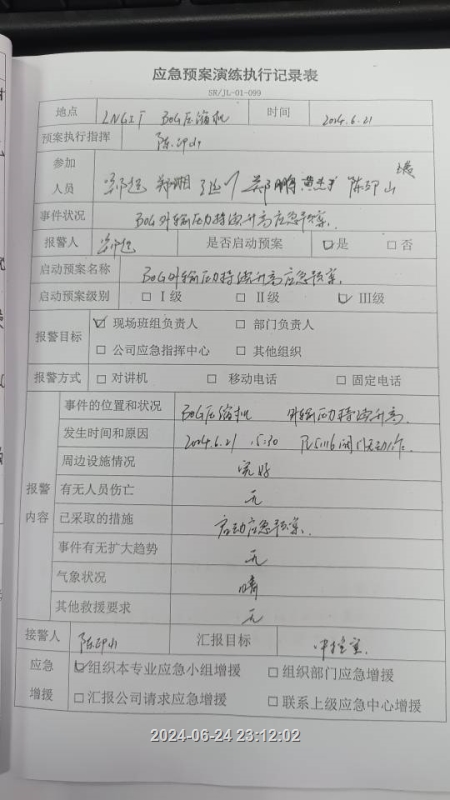 应急预案演练执行记录表
SR/JL-01-099
地点 BOG压缩机 时间 2024.6.21
预案执行指挥 陈印山
参加 郑湘 郑鹏 陈印山
人员
事件状况 BOG外输压力持续升高应急预案.
报警人 是否启动预案 ☑是 □否
启动预案名称 BOG外输压力持续升高应急预案.
启动预案级别 □Ⅰ级 □Ⅱ级 ☑Ⅲ级
报警目标 ☑现场班组负责人 □部门负责人
□公司应急指挥中心 □其他组织
报警方式 □对讲机 □移动电话 □固定电话
事件的位置和状况 BOG压缩机 外输压力持续升高.
发生时间和原因 2024.6.21
周边设施情况 完好
报警 有无人员伤亡 无
内容 已采取的措施 启动应急预案.
事件有无扩大趋势 无
气象状况 晴
其他救援要求 无
接警人 陈印山 汇报目标 中控室
应急 ☑组织本专业应急小组增援 □组织部门应急增援
增援 □汇报公司请求应急增援 □联系上级应急中心增援
2024-06-24 23:12:02